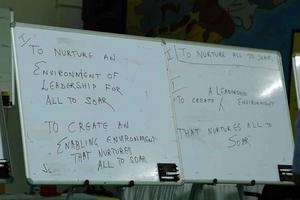 TO NURTURE AN
ENVIRONMENT OF
LEADERSHIP FOR
ALL TO SOAR
TO CREATE AN
ENABLING ENVIRONMENT
THAT NURTURES
ALL TO SOAR
TO NURTURE ALL TO SOAR
A LEADERSHIP
TO CREATE ENVIRONMENT
THAT NURTURES ALL TO
SOAR